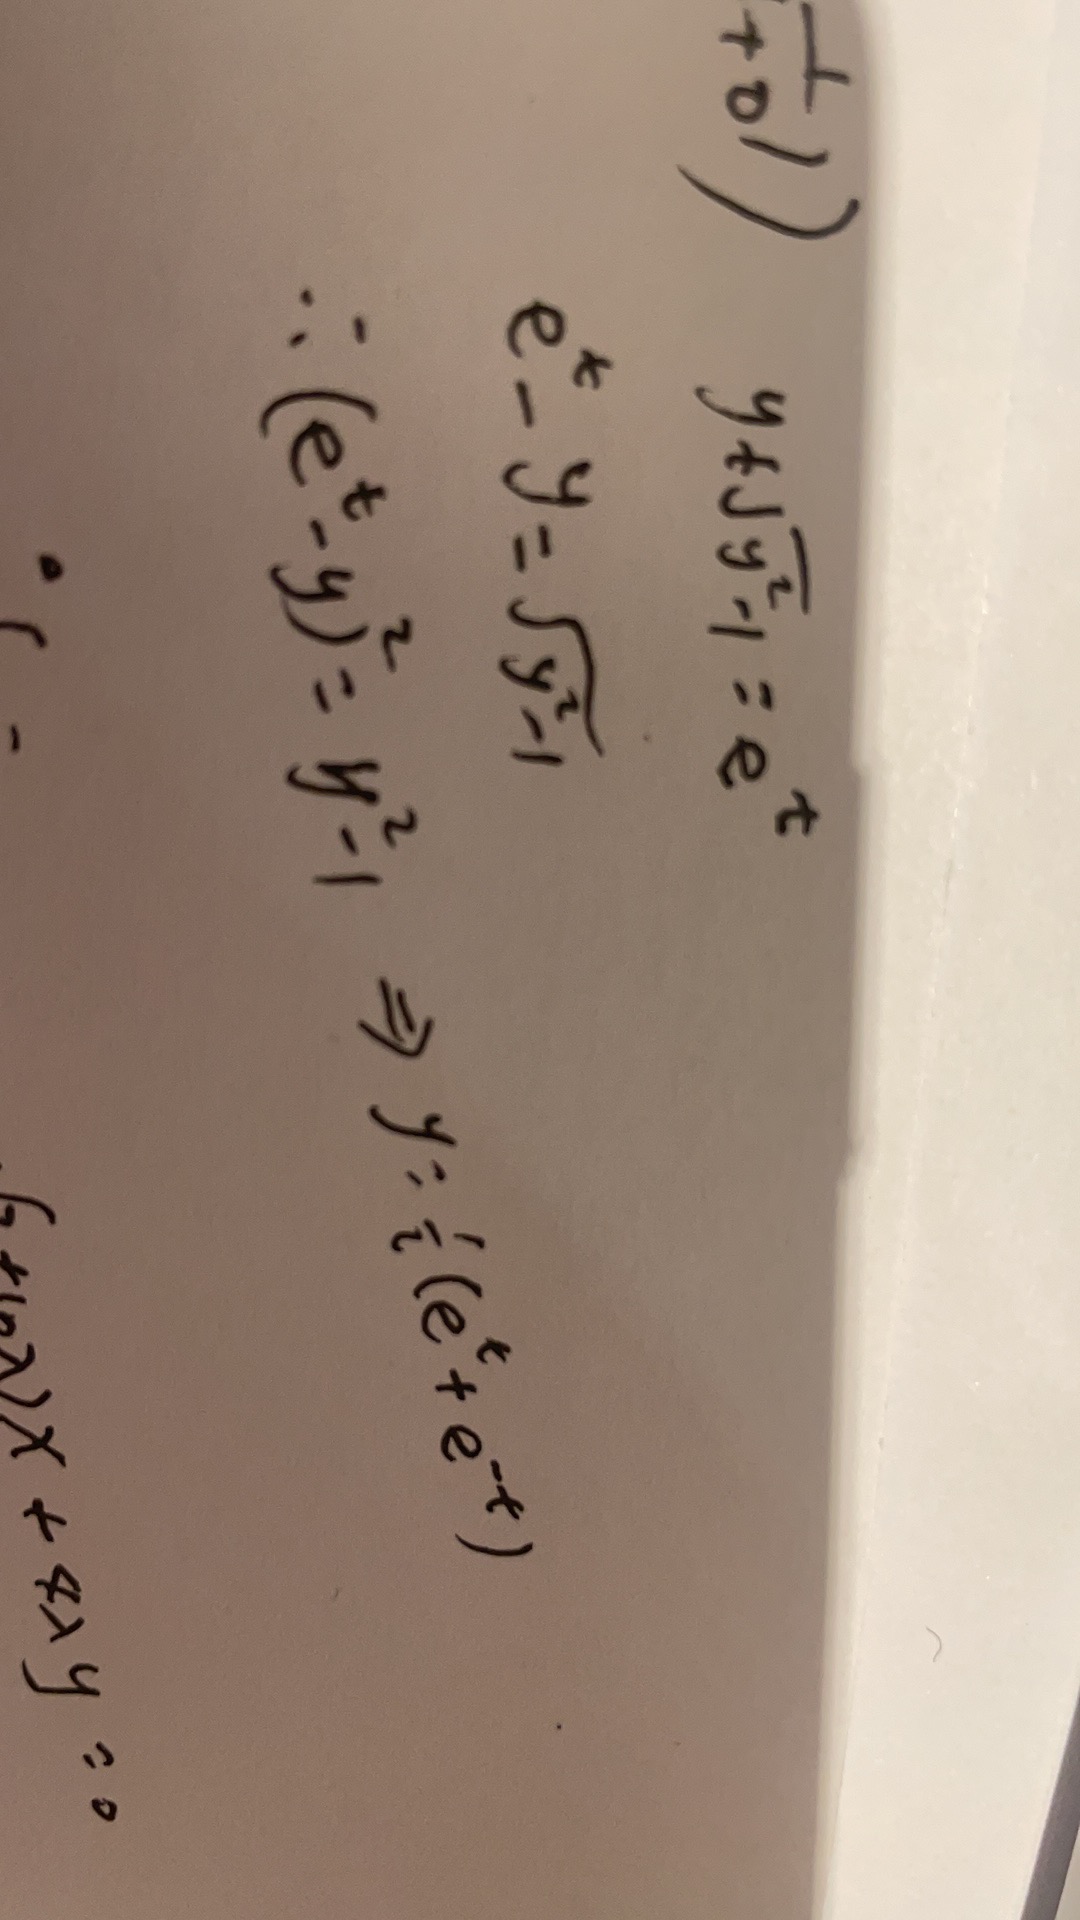 +0))
y+√y²-1 = e^t
e^t - y = √y²-1
∴ (e^t - y)² = y²-1 ⇒ y = ½(e^t + e^-t)
+10λ)x + 8λy = 0